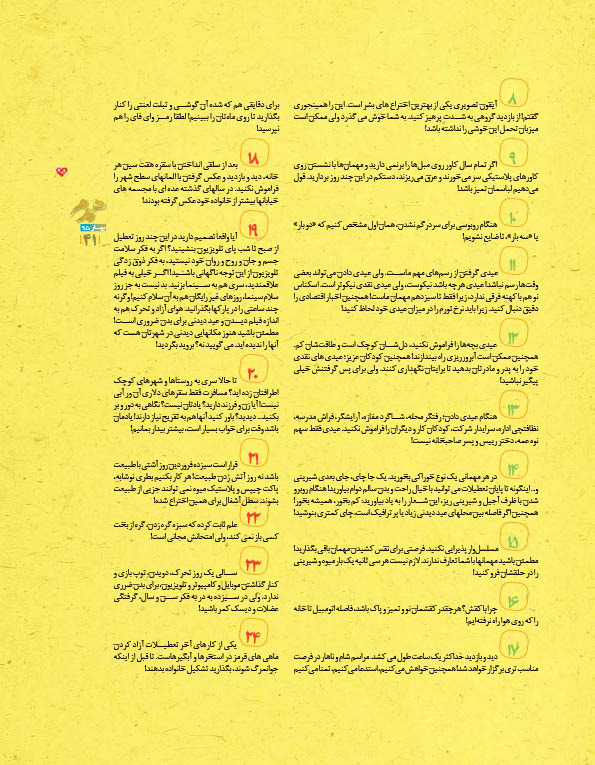 ۸
آیفون تصویری یکی از بهترین اختراع های بشر است. این را همینجوری
گفتم! از بازدید گروهی به شدت پرهیز کنید. به شما خوش می گذرد ولی ممکن است
میزبان تحمل این خوشی را نداشته باشد!
۹
اگر تمام سال کاور روی مبل‌ها را برنمی دارید و مهمان‌ها با نشستن روی
کاورهای پلاستیکی سر می‌خورند و عرق می‌ریزند، دستکم در این چند روز بردارید. قول
می‌دهیم لباسمان تمیز باشد!
۱۰
هنگام روبوسی برای سر درگم نشدن، همان اول مشخص کنیم که «دو بار»
یا «سه بار»، تا ضایع نشویم!
۱۱
عیدی گرفتن از رسم‌های مهم ماست. ولی عیدی دادن می‌تواند بعضی
وقت‌ها رسم نباشد! عیدی هر چه باشد نیکوست، ولی عیدی نقدی نیکوتر است. اسکناس
نو هم با کهنه فرقی ندارد، زیرا فقط تا سیزدهم مهمان ماست! همچنین اخبار اقتصادی را
دقیق دنبال کنید، زیرا باید نرخ تورم را در میزان عیدی خود لحاظ کنید!
۱۲
عیدی بچه‌ها را فراموش نکنید، دل‌شان کوچک است و طاقت‌شان کم.
همچنین ممکن است آبروریزی راه بیندازند! همچنین کودکان عزیز؛ عیدی های نقدی
خود را به پدر و مادرتان بدهید تا برایتان نگهداری کنند. ولی برای پس گرفتنش خیلی
پیگیر نباشید!
۱۳
هنگام عیدی دادن؛ رفتگر محله، شاگرد مغازه، آرایشگر، فراش مدرسه،
نظافتچی اداره، سرایدار شرکت، کودکان کار و دیگران را فراموش نکنید. عیدی فقط سهم
نوه عمه، دختر رییس و پسر صاحبخانه نیست!
۱۴
در هر مهمانی یک نوع خوراکی بخورید. یک جا چای، جای بعدی شیرینی
و... اینگونه تا پایان تعطیلات می توانید با خیال راحت و بدن سالم دوام بیاورید! هنگام روبرو
شدن با ظرف آجیل و شیرینی ریز، این شعار را به یاد بیاورید: کم بخور، همیشه بخور!
همچنین اگر فاصله بین محلهای عید دیدنی زیاد یا پر ترافیک است، چای کمتری بنوشید!
۱۵
مسلسل‌وار پذیرایی نکنید. فرصتی برای نفس کشیدن مهمان باقی بگذارید!
مطمئن باشید مهمانها با شما تعارف ندارند. لازم نیست هر سی ثانیه یک بار میوه و شیرینی
را در حلقشان فرو کنید!
۱۶
چرا با کفش؟ هر چقدر کفشمان نو و تمیز و پاک باشد، فاصله اتومبیل تا خانه
را که روی هوا راه نرفته‌ایم!
۱۷
دید و بازدید حداکثر یک ساعت طول می کشد. مراسم شام و ناهار در فرصت
مناسب تری برگزار خواهد شد! همچنین خواهش می‌کنیم، استدعا می‌کنیم، تمنا می‌کنیم
برای دقایقی هم که شده آن گوشی و تبلت لعنتی را کنار
بگذارید تا روی ماه‌تان را ببینیم! لطفا رمز وای فای را هم
نپرسید!
۱۸
بعد از سلفی انداختن با سفره هفت سین هر
خانه، دید و بازدید و عکس گرفتن با المانهای سطح شهر را
فراموش نکنید. در سالهای گذشته عده ای با مجسمه های
خیابانها بیشتر از خانواده خود عکس گرفته بودند!
۱۹
آیا واقعا تصمیم دارید در این چند روز تعطیل
از صبح تا شب پای تلویزیون بنشینید؟ اگر به فکر سلامت
جسم و جان و روح و روان خود نیستید، به فکر ذوق زدگی
تلویزیون از این توجه ناگهانی باشید! اگر خیلی به فیلم
علاقمندید، سری هم به سینما بزنید. بد نیست به جز روز
سلام سینما، روزهای غیر رایگان هم به آن سلام کنیم! وگرنه
چند ساعتی را در پارکها بگذرانید. هوای آزاد و تحرک هم به
اندازه فیلم دیدن و عید دیدنی برای بدن ضروری است!
مطمئن باشید هنوز مکانهایی دیدنی در شهرتان هست که
آنها را ندیده اید. می گویید نه؟ بروید بگردید!
۲۰
تا حالا سری به روستاها و شهرهای کوچک
اطرافتان زده اید؟ مسافرت فقط سفرهای دلاری آن ور آبی
نیست! آیا زن و فرزند دارید؟ یادتان نیست؟ نگاهی به دور و بر
بکنید... دیدید؟ باور کنید آنها هم به تفریح نیاز دارند! یادمان
باشد وقت برای خواب بسیار است، بیشتر بیدار بمانیم!
۲۱
قرار است سیزده فروردین روز آشتی با طبیعت
باشد نه روز آتش زدن طبیعت! هر کار بکنیم بطری نوشابه،
پاکت چیپس و پلاستیک میوه نمی توانند جزیی از طبیعت
بشوند. سطل آشغال برای همین اختراع شده!
۲۲
علم ثابت کرده که سبزه گره زدن، گره از بخت
کسی باز نمی کند، ولی امتحانش مجانی است!
۲۳
سالی یک روز تحرک، دویدن، توپ بازی و
کنار گذاشتن موبایل و کامپیوتر و تلویزیون، برای بدن ضرری
ندارد. ولی در سیزده به در به فکر سن و سال، گرفتگی
عضلات و دیسک کمر باشید!
۲۴
یکی از کارهای آخر تعطیلات آزاد کردن
ماهی های قرمز در استخرها و آبگیرهاست. تا قبل از اینکه
جوانمرگ شوند، بگذارید تشکیل خانواده بدهند!
بهار ۹۵
۴۱